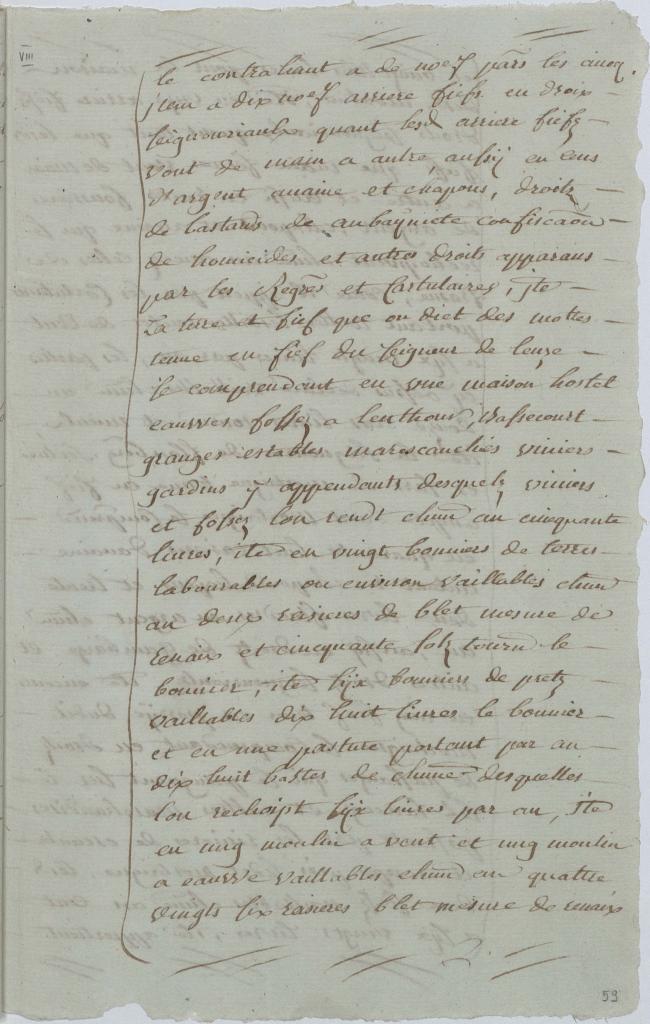 VIII
le contraliant a de noef pārs les cincq.
jtem a dix noef arriere fiefs en droix —
seignouriaulx quant lesd arriere fiefz —
vont de main a autre, aussÿ en cens
d'argent avaine et chapons, droitz —
de bastards de aubaynieté confiscāon —
de homicides et autres droits apparans
par les Regrēs et Cartulaires, jte —
La terre et fief que on dict des mottes
tenue en fief du seigneur de leuze —
se comprendant en une maison, hostel
eauwes fossez a lenthour, bassecourt —
granges estables marescauchies viviers —
gardins ÿ appendants desquelz viviers
et fossez lon rendt chūn an cincquante
livres, ite en vingt bonniers de terres
labourables ou environ vaillables chūn
an deux rasieres de blet mesure de
renaix et cincquante solz tourn le —
bonnier, ite sijx bonniers de pretz
vaillables dix huit livres le bonnier —
et en une pasture portant par an —
dix huit bastes de chūne desquelles
lon rechoipt sijx livres par an, ite
en ung moulin a vent et ung moulin
a eauwe vaillables chūn an quattre
vingts six rasieres blet mesure de renaix
59